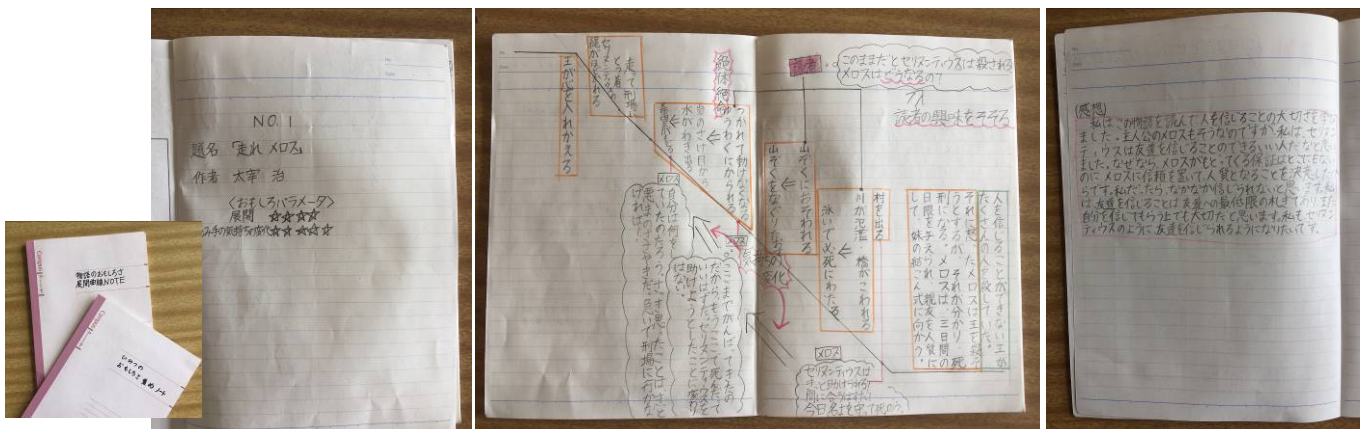 物語のおもしろさ
展開曲線NOTE
Campus
いみつの
おもしろさ集めノート
NO.1
題名「走れメロス」
作者 太宰 治
〈おもしろパラメータ〉
展開 ☆☆☆☆
み手の気持ちの変化☆☆☆☆☆
読者
このままだとセリヌンティウスは殺される
メロスはどうなるの?
読者の興味をそそる
人を信じることができない王が
たくさんの人を殺していた。
それに怒ったメロスは王を殺そ
うとするが、それが分かり、死
刑になる。メロスは、三日間の
日限を与えられ、親友を人質に
して、妹の結こん式に向かう。
村を出る
川が氾濫 橋がこわれる
泳いで必死にわたる
山ぞくにおそわれる
山ぞくをなぐりたおす
メロス
セリヌンティウスは
きっと助けられる!
間に合うはずだ
気持ちの変化
絶体絶命
つかれて動けなくなる
ゆうわくにかられる
岩のさけ目から
水がわき出る
希望が
メロス
ここまでがんばってきたの
だからもうここで死をたって
いいはずだ。セリヌンティウスを
助けようとしたことに変わり
はない。
メロス
自分は何を
ていたのだろう。さっき思ったことはきっと
悪まのささやきだ。急いで刑場に行かな
ければ。
走って刑場
とう着。
セリヌンティウスの
縄がほどかれる
王が心を入れかえる
(感想)
私はこの物語を読んで人を信じることの大切さを学び
ました。主人公のメロスもそうなのですが、私は、セリヌン
ティウスは友達を信じることのできるいい人だなと思い
ました。なぜなら、メロスがもどってくる保証はどこにもない
のにメロスに信頼を置いて人質となることを決意したか
らです。私だったら、なかなか信じられないと思います。私
は、友達を信じることは友達への最低限の礼ぎであり、また
自分を信じてもらう上でも大切だと思います。私もセリヌン
ティウスのように友達を信じられるようになりたいです。